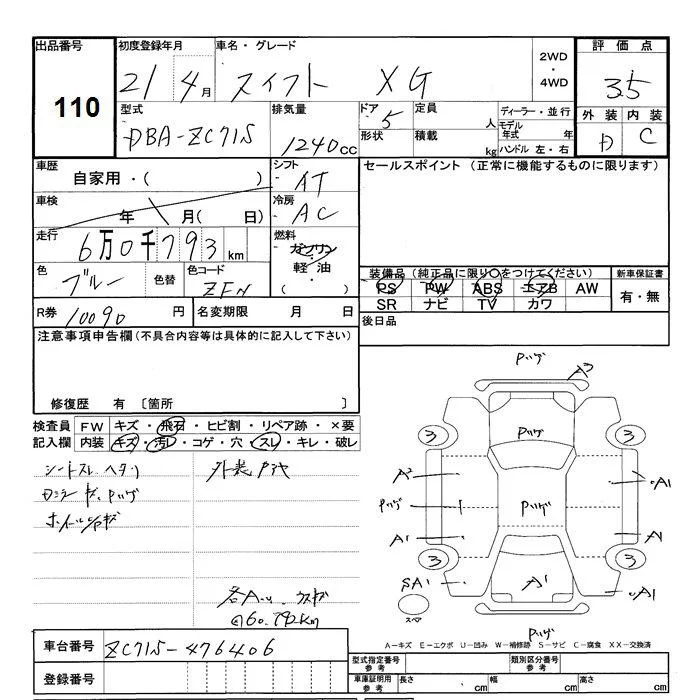 出品番号 初度登録年月 車名・グレード 2WD・4WD 評価点
110
21 4月 スイフト XG 3.5
型式 排気量 ドア 定員 ディーラー・並行 外装 内装
DBA-ZC71S 1240cc 5 人 モデル年式 年 D C
形状 積載 kg ハンドル 左・右
車歴 シフト セールスポイント (正常に機能するものに限ります)
自家用・( ) AT
車検 冷房
年 月( 日) AC
走行 燃料
6万0千793km ガソリン・
軽油・
( )
色 色替 色コード 装備品 (純正品に限り○をつけてください) 新車保証書
ブルー ZFN PS PW ABS エアB AW 有・無
SR ナビ TV カワ
R券 10090円 名変期限 月 日 後日品
注意事項申告欄(不具合内容等は具体的に記入して下さい)
修復歴 有 〔箇所 〕
検査員 FW キズ・飛石・ヒビ割・リペア跡・×要
記入欄 内装 キズ・汚レ・コゲ・穴・スレ・キレ・破レ
シートスレ ヘタリ
外装
60.792km
A2
3 3
A2 A1
A1 A
3 3
SA1 A1 A1
スペア
A-キズ E-エクボ U-凹み W-補修跡 S-サビ C-腐食 XX-交換済
車台番号 ZC71S-476406
登録番号
型式指定番号 参考 類別区分番号 参考
車庫証明用 参考 長さ cm 幅 cm 高さ cm